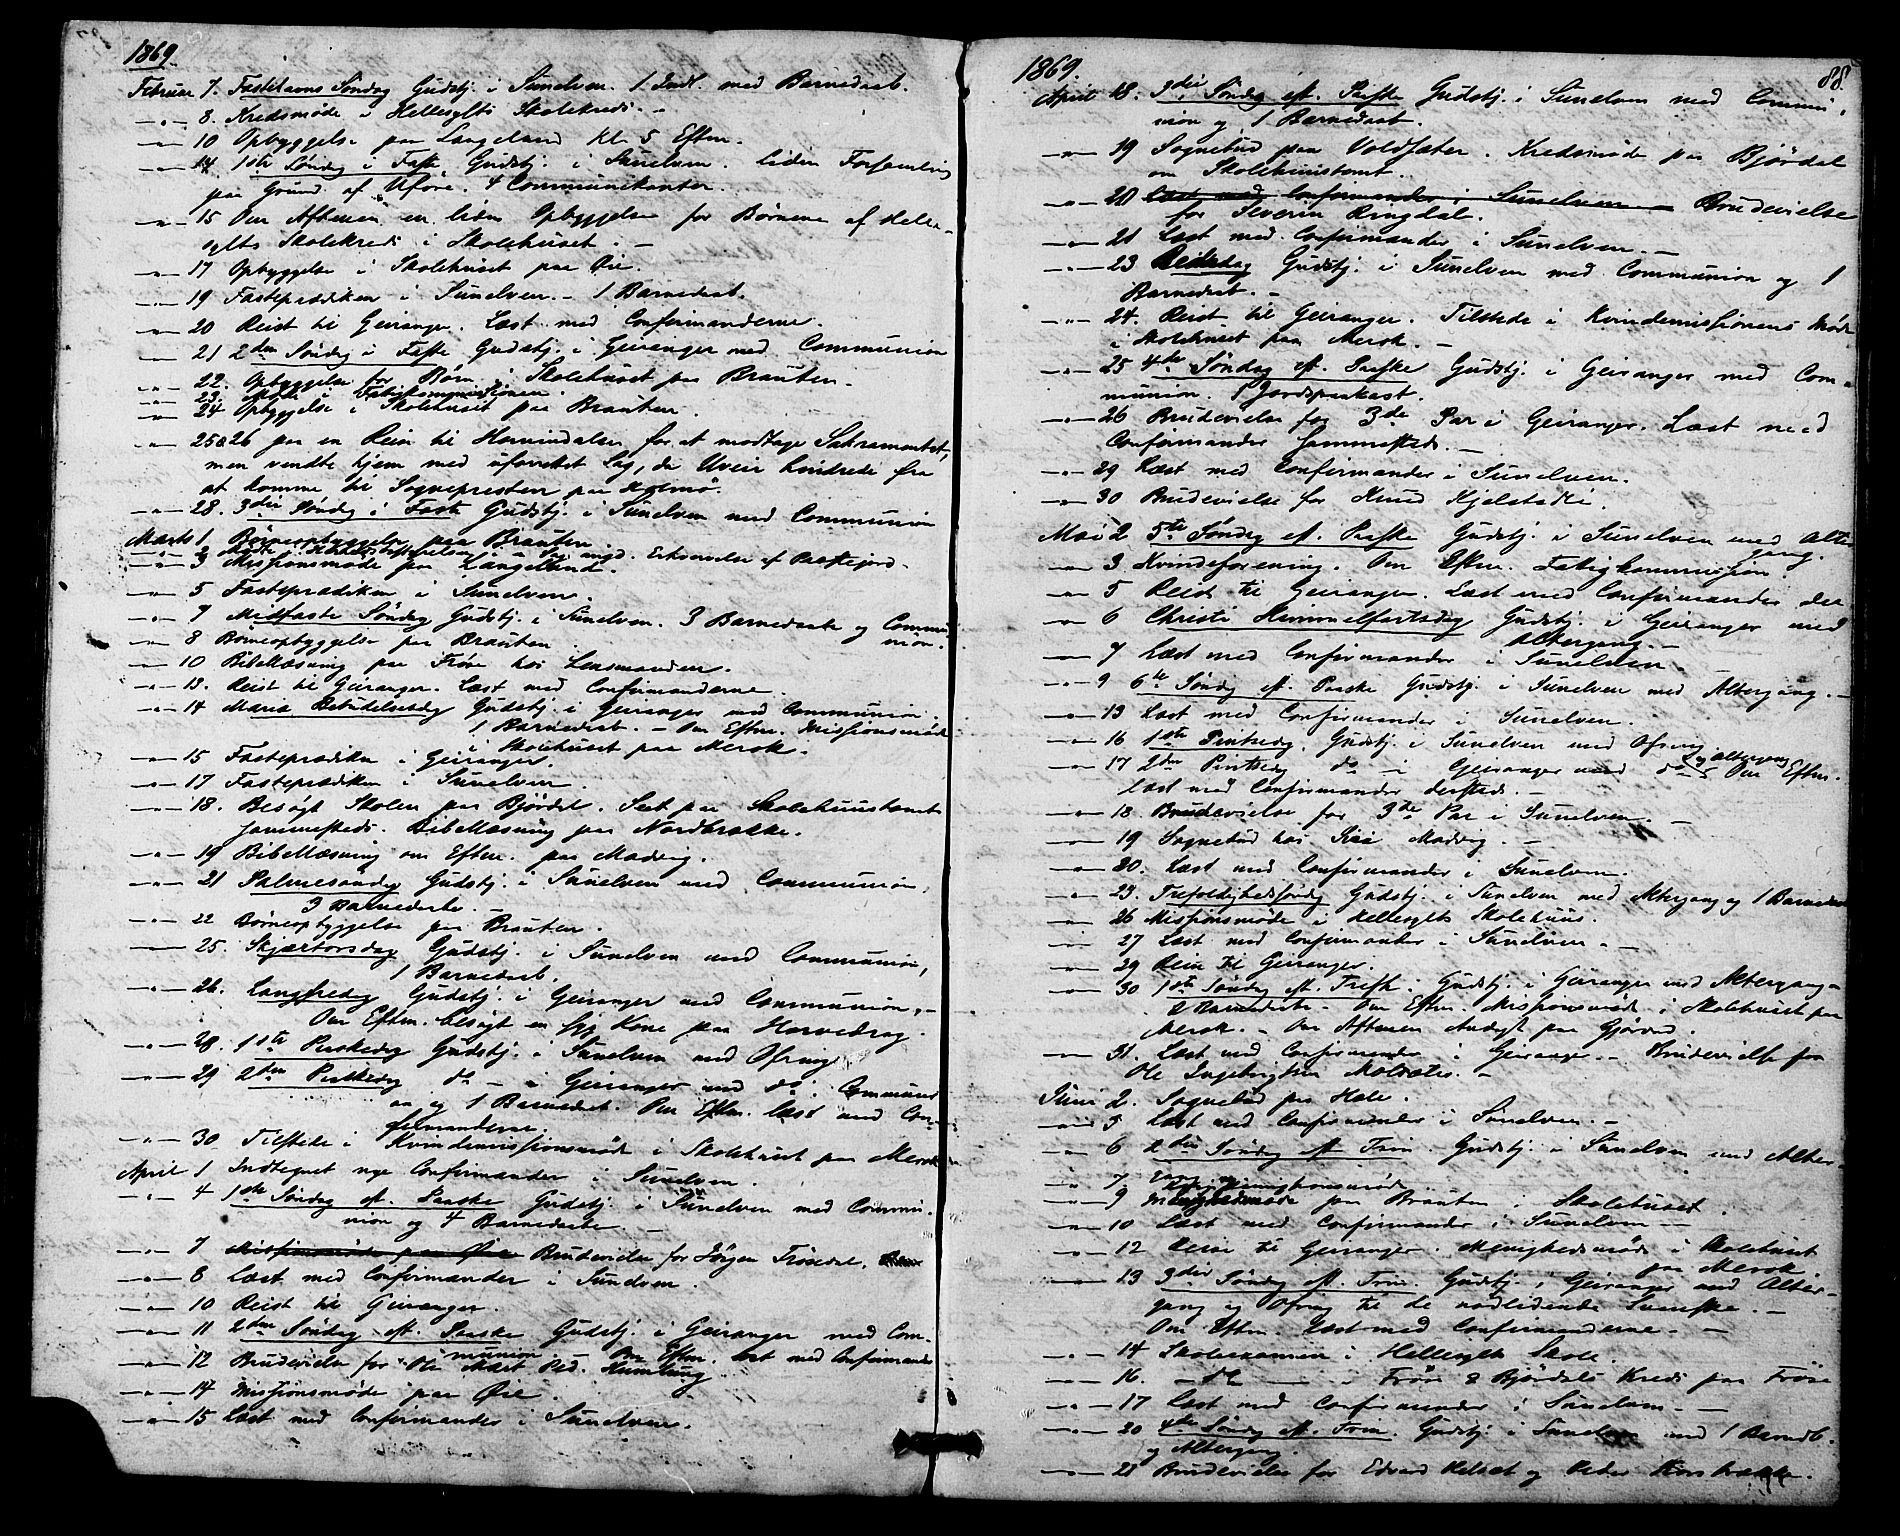 1869.
Februar 7. Fastelavns Søndag Gudstj. i Sunelven. 1 Indl. med Barnedaab.
—"— 8. Kredsmøde i Hellesylts Skolekreds. —
—"— 10 Opbyggelse paa Langeland Kl. 5 Eftm.
—"— 14. 1ste Søndag i Faste Gudstj. i Sunelven. liden Forsamling
paa Grund af Uføre. 4 Communikanter.
—"— 15 Om Aftenen en liden Opbyggelse for Børnene af Helle-
sylts Skolekreds i Skolehuset. —
—"— 17 Opbyggelse i Skolehuset paa Øie.
—"— 19 Fasteprædiken i Sunelven. — 1 Barnedaab.
—"— 20 Reist til Geiranger. Læst med Confirmanderne.
—"— 21 2den Søndag i Faste Gudstj. i Geiranger med Communion
—"— 22. Opbyggelse for Børn i Skolehuset paa Brauten.
—"— 23. Møde i Fattigkommissionen.
—"— 24 Opbyggelse i Skolehuset paa Brauten.
—"— 25 & 26 paa en Reise til Hornindalen for at modtage Sakramentet,
men vendte hjem med uforrettet Sag, da Uveir hindrede fra
at komme til Sognepresten paa Holmø.
—"— 28. 3die Søndag i Faste Gudstj. i Sunelven med Communion
Marts 1. Børneopbyggelse paa Brauten.
—"— 2 Møde i i Sag angd. af
—"— 3 Missionsmøde paa Langeland.
—"— 5 Fasteprædiken i Sunelven.
—"— 7 Midfaste Søndag Gudstj. i Sunelven. 3 Barnedaabe og Commu-
nion.
—"— 8 Børneopbyggelse paa Brauten.
—"— 10 Bibellæsning paa Frøse hos Lensmanden.
—"— 13. Reist til Geiranger. Læst med Confirmanderne.
—"— 14 Maria Bebudelsesdag Gudstj. i Geiranger med Communion.
1 Barnedaab. — Om Eftm. Missionsmøde
i Skolehuset paa Merok.
—"— 15 Fasteprædiken i Geiranger.
—"— 17 Fasteprædiken i Sunelven.
—"— 18. Besøgt Skolen paa Bjørdal. Seet paa Skolehuustomt
sammesteds. Bibellæsning paa Nordbrække.
—"— 19 Bibellæsning om Eftm. paa Madvig.
—"— 21 Palmesøndag Gudstj. i Sunelven med Communion,
3 Barnedaabe. —
—"— 22 Børneopbyggelse paa Brauten.
—"— 25. Skjærtorsdag Gudstj. i Sunelven med Communion,
1 Barnedaab.
—"— 26. Langfredag Gudstj. i Geiranger med Communion. —
Om Eftm. besøgt en syg Kone paa Horvedrag.
—"— 28. 1ste Paaskedag Gudstj. i Sunelven med Ofring
—"— 29 2den Paaskedag do — i Geiranger med do. Communi-
on og 1 Barnedaab. Om Eftm. læst med Con-
firmanderne.
—"— 30 Tilstede i Kvindemissionsmøde i Skolehuset paa Merok
April 1 Indtegnet nye Confirmander i Sunelven.
—"— 4 1ste Søndag eft. Paaske Gudstj. i Sunelven med Commu-
nion og 4 Barnedaabe. —
—"— 7 Missionsmøde paa Øie Brudevielse for Jørgen Frøsdal.
—"— 8 Læst med Confirmander i Sunelven.
—"— 10 Reist til Geiranger.
—"— 11 2den Søndag eft. Paaske Gudstj. i Geiranger med Com-
munion. Om Eftm. læst med Confirmander
—"— 12 Brudevielse for Ole Mart. Ped. Humlung
—"— 14 Missionsmøde paa Øie.
—"— 15 Læst med Confirmander i Sunelven.
1869.
88.
April 18. 3die Søndag eft. Paaske Gudstj. i Sunelven med Commu-
nion og 1 Barnedaab.
—"— 19 Sognebud paa Voldsæter. Kredsmøde paa Bjørdal
om Skolehuustomt.
—"— 20 Læst med Confirmander i Sunelven — Brudevielse
for Severin Ringdal.
—"— 21 Læst med Confirmander i Sunelven. —
—"— 23 Bededag Gudstj. i Sunelven med Communion og 1
Barnedaab. —
—"— 24. Reist til Geiranger. Tilstede i Kvindemissionens Møde
i Skolehuset paa Merok. —
—"— 25 4de Søndag eft. Paaske Gudstj. i Geiranger med Com-
munion. 1 Jordspaakast.
—"— 26 Brudevielse for 3de Par i Geiranger. Læst med
Confirmander sammesteds. —
—"— 29 Læst med Confirmander i Sunelven.
—"— 30 Brudevielse for Knud Kjelstadli.
Mai 2 5te Søndag eft. Paaske Gudstj. i Sunelven med Alter-
gang.
—"— 3 Kvindeforening. Om Eftm. Fattigkommission.
—"— 5 Reist til Geiranger. Læst med Confirmander der
—"— 6 Christi Himmelfartsdag Gudstj. i Geiranger med
Altergang. —
—"— 7 Læst med Confirmander i Sunelven.
—"— 9 6te Søndag eft. Paaske Gudstj. i Sunelven med Altergang. —
—"— 13 Læst med Confirmander i Sunelven.
—"— 16 1ste Pintsedag Gudstj. i Sunelven med Ofring
og Altergang
—"— 17 2den Pintsedag do — i Geiranger med do Om Eftm.
læst med Confirmander dersteds. —
—"— 18. Brudevielse for 3de Par i Sunelven. —
—"— 19 Sognebud hos Madvig. —
—"— 20. Læst med Confirmander i Sunelven.
—"— 23. Trefoldighedssøndag Gudstj. i Sunelven med Altergang og 1 Barnedaab
—"— 26 Missionsmøde i Hellesylts Skolehuus.
—"— 27 Læst med Confirmander i Sunelven. —
—"— 29 Reise til Geiranger.
—"— 30 1ste Søndag eft. Trefh. Gudstj. i Geiranger med Altergang —
2 Barnedaabe. Om Eftm. Missionsmøde i Skolehuset paa
Merok. — Om Aftenen Andagt paa Gjørva.
—"— 31. Læst med Confirmander i Geiranger. — Brudevielse for
Ole Ingebrigtsen Molsæter. —
Juni 2. Sognebud paa Hole.
—"— 5 Læst med Confirmander i Sunelven. —
—"— 6 2den Søndag eft. Trin. Gudstj. i Sunelven med Alter-
—"— 7.
—"— 9 Menighedsmøde paa Brauten i Skolehuset.
—"— 10 Læst med Confirmander i Sunelven —
—"— 12 Reise til Geiranger. Menighedsmøde i Skolehuset
paa Merok
—"— 13 3die Søndag eft. Trin. Gudstj. i Geiranger med Alter-
gang og Ofring til de nødlidende Svenske. —
Om Eftm. læst med Confirmanderne. —
—"— 14 Skoleexamen i Hellesylts Skole.
—"— 16. — do — i Frøse & Bjørdals Kreds paa Frøse
—"— 17 Læst med Confirmander i Sunelven —
—"— 20 4de Søndag eft. Trin. Gudstj. i Sunelven med 1 Barnedb.
og Altergang.
—"— 21 Brudevielse for Edvard og Peder Korsbrække.